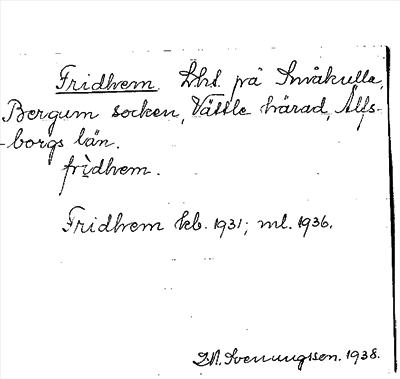 Fridhem Lht. på Småkulla,
Bergum socken, Vättle härad, Älfs-
-borgs län.
frìdhem.
Fridhem kb. 1931; ml. 1936.
Svenungsson. 1938.